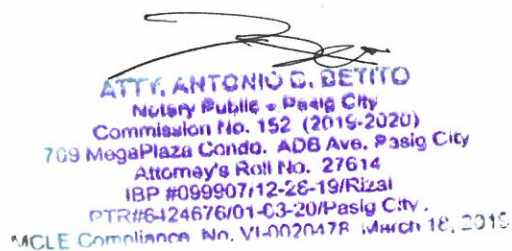 ATTY. ANTONIO B. BETITO
Notary Public - Pasig City
Commission No. 152 (2019-2020)
709 MegaPlaza Condo. ADB Ave. Pasig City
Attorney's Roll No. 27614
IBP #099907/12-26-19/Rizal
PTR#6424676/01-03-20/Pasig City.
MCLE Compliance No. VI-0020478 March 18, 2019